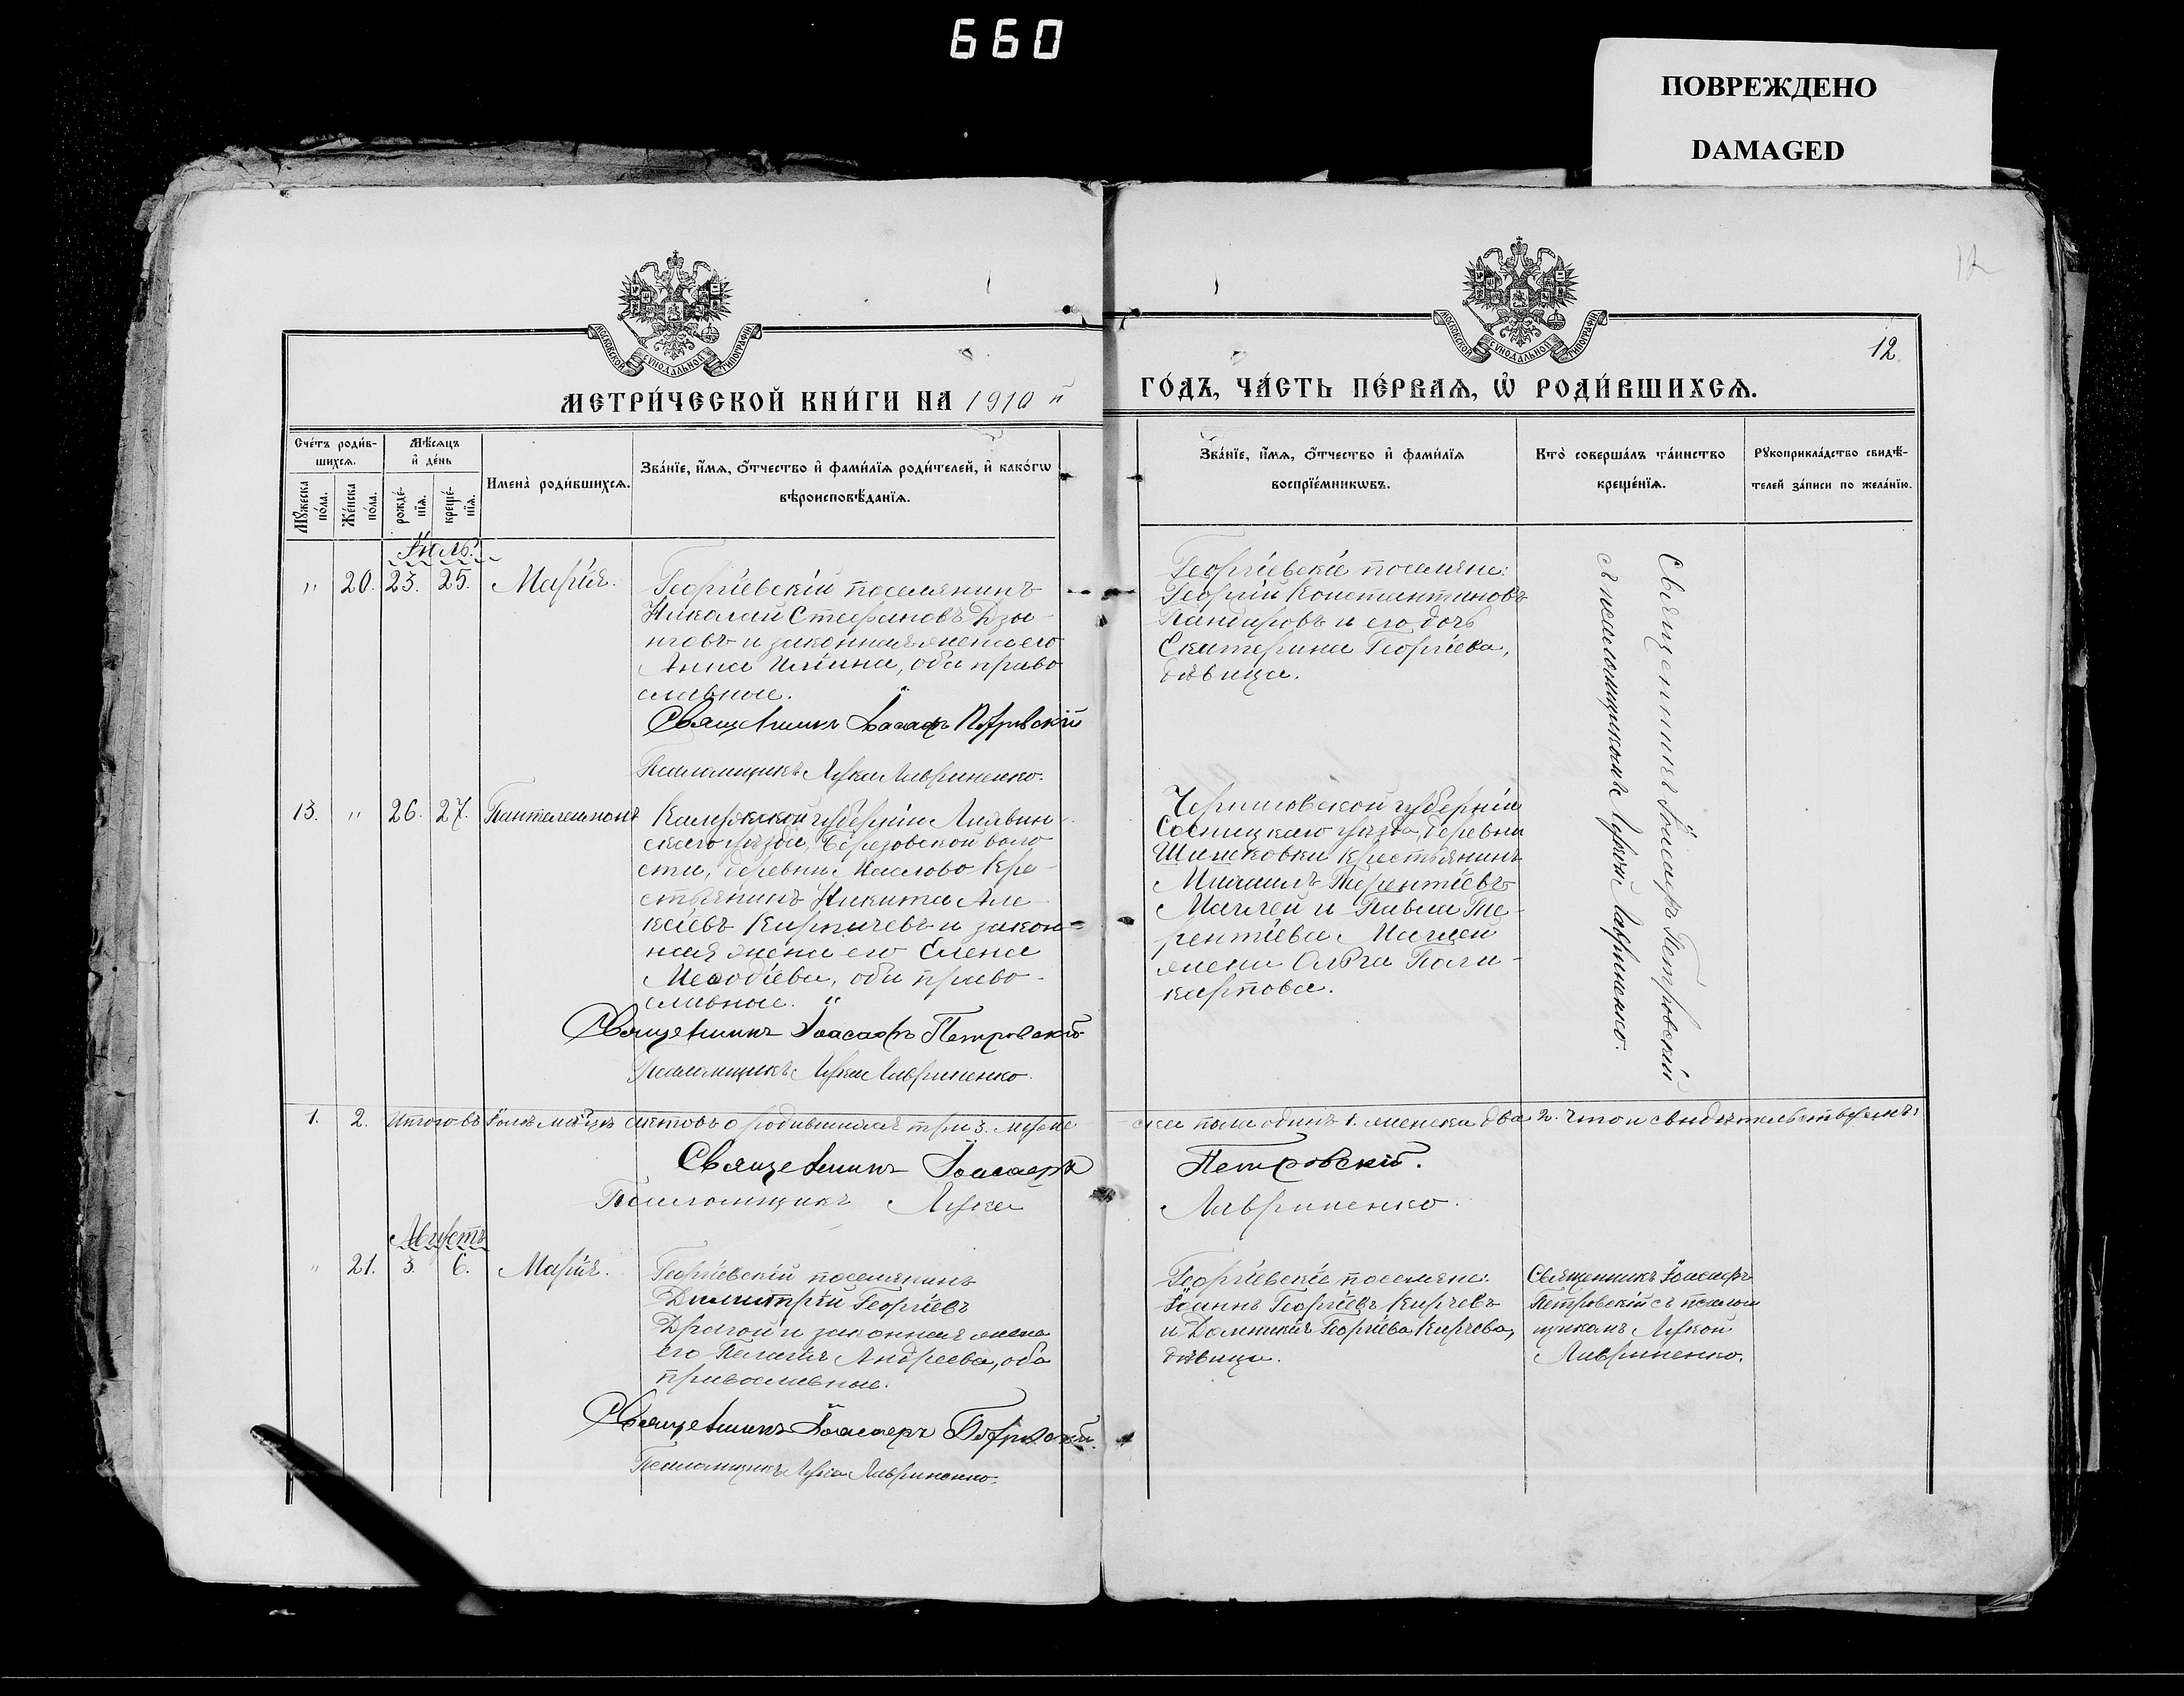 660
ПОВРЕЖДЕНО
DAMAGED
12
МОСКОВСКОЙ СѴНОДАЛЬНОЙ ТИПОГРАФІИ
МОСКОВСКОЙ СѴНОДАЛЬНОЙ ТИПОГРАФІИ
12
МЕТРИ́ЧЕСКОЙ КНИ́ГИ НА 1910 й
ГО́ДЪ, ЧА́СТЬ ПЕ́РВАѦ, Ѽ РОДИ́ВШИХСѦ.
Сче́тъ роди́в-
шихсѧ.
Мѣ́сѧцъ
и҆ де́нь
Мꙋ́жеска
по́ла.
Же́нска
по́ла.
рожде́-
нїѧ.
креще́-
нїѧ.
Имена̀ роди́вшихсѧ.
Зва́нїе, и҆́мѧ, ѻ҆́тчество и҆ фами́лїѧ роди́телей, и҆ како́гѡ
вѣроисповѣ́данїѧ.
Зва́нїе, и҆́мѧ, ѻ҆́тчество и҆ фами́лїѧ
воспрїе́мникѡвъ.
Кто̀ соверша́лъ та́инство
креще́нїѧ.
Рꙋкоприкла́дство свидѣ́-
телей за́писи по жела́нїю.
Іюль.
" 20. 23. 25. Марія.
Георгіевскій поселянинъ
Николай Стефановъ Дзы-
нговъ и законная жена его
Анна Ильина, оба право
славные.
Священникъ Іоасафъ Петровскій
Псаломщикъ Лука Лавриненко.
Георгіевскіе поселяне:
Георгій Константиновъ
Пандировъ и его дочь
Екатерина Георгіева,
дѣвица.
Священникъ Іоасафъ Петровскій
съ псаломщикомъ Лукой Лавриненко.
13. " 26. 27. Пантелеимонъ
Калужской губерніи Лихвин
скаго уѣзда, Березовской воло
сти, деревни Маслово кре-
стьянинъ Никита Але
ксіевъ Кирпичевъ и закон-
ная жена его Елена
Меѳодіева, оба право-
славные.
Священникъ Іоасафъ Петровскій
Псаломщикъ Лука Лавриненко.
Черниговской губерніи
Сосницкаго уѣзда, деревни
крестьянинъ
Михаилъ Терентіевъ
и Павла Те-
рентіева
жена Ольга Поли-
карпова.
1. 2. Итого въ Іюлѣ мѣсяцѣ актовъ о родившихся три 3. муже
ска пола одинъ 1. женска два 2. Что и свидѣтельствуемъ:
Священникъ Іоасафъ Петровскій.
Псаломщикъ Лука Лавриненко.
Августъ
" 21. 3. 6. Марія.
Георгіевскій поселянинъ
Димитрій Георгіевъ
Драгой и законная жена
его Пелагія Андреева, оба
православные.
Священникъ Іоасафъ Петровскій.
Псаломщикъ Лука Лавриненко.
Георгіевскіе поселяне:
Іоаннъ Георгіевъ Кирчевъ
и Домникія Георгіева Кирчева,
дѣвица.
Священникъ Іоасафъ
Петровскій съ псалом
щикомъ Лукой
Лавриненко.